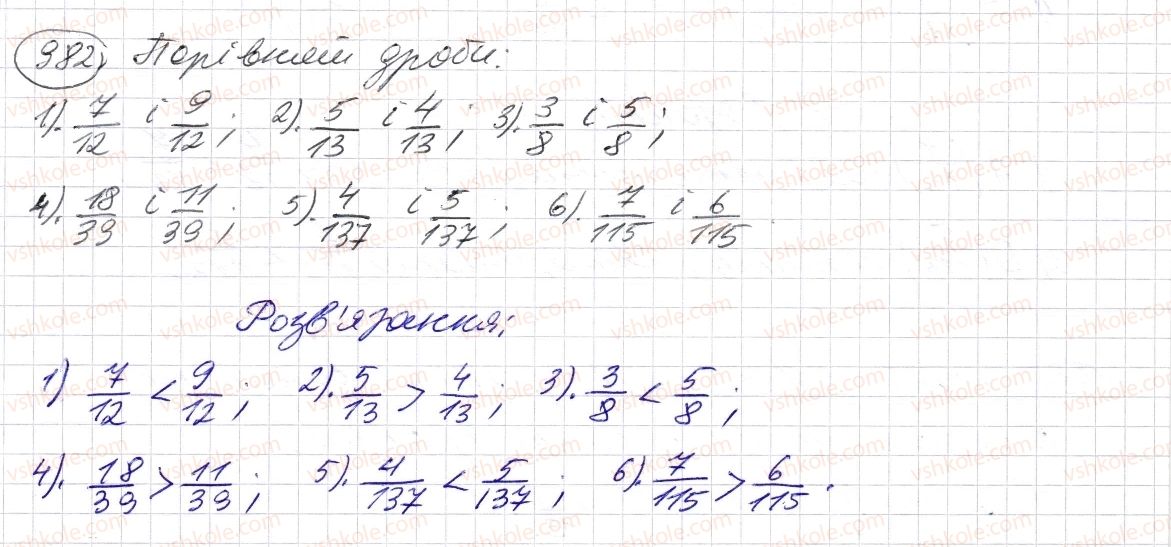 982) Порівняй дроби:
1). 7/12 і 9/12; 2). 5/13 і 4/13; 3). 3/8 і 5/8;
4). 18/39 і 11/39; 5). 4/137 і 5/137; 6). 7/115 і 6/115
Розв'язання;
1) 7/12 < 9/12; 2). 5/13 > 4/13; 3). 3/8 < 5/8;
4). 18/39 > 11/39; 5). 4/137 < 5/137; 6). 7/115 > 6/115.
vshkole.com